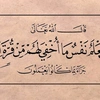 قال الله تعالى
فلا تعلم نفس ما أخفي لهم من قرة أعين
جزاء بما كانوا يعملون